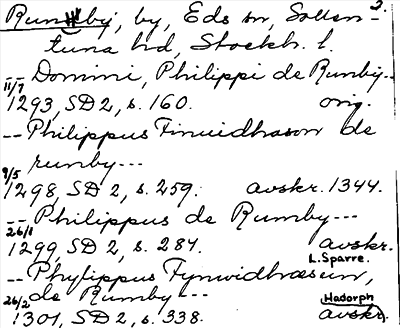 2.
Runnby, by, Eds sn, Sollen-
tuna hd, Stockh. l.
-- Domini, Philippi de Rumby--
11/7
1293, SD 2, s. 160. orig.
-- Philippus Finuidhason de
rumby---
9/5
1298, SD 2, s. 259. avskr. 1344.
-- Philippus de Rumby---
26/1
1299, SD 2, s. 287. avskr.
L. Sparre.
-- Phylippus Fynwidhæsun,
de Rumby---
Hadorph
26/2
1301, SD 2, s. 338. avskr.